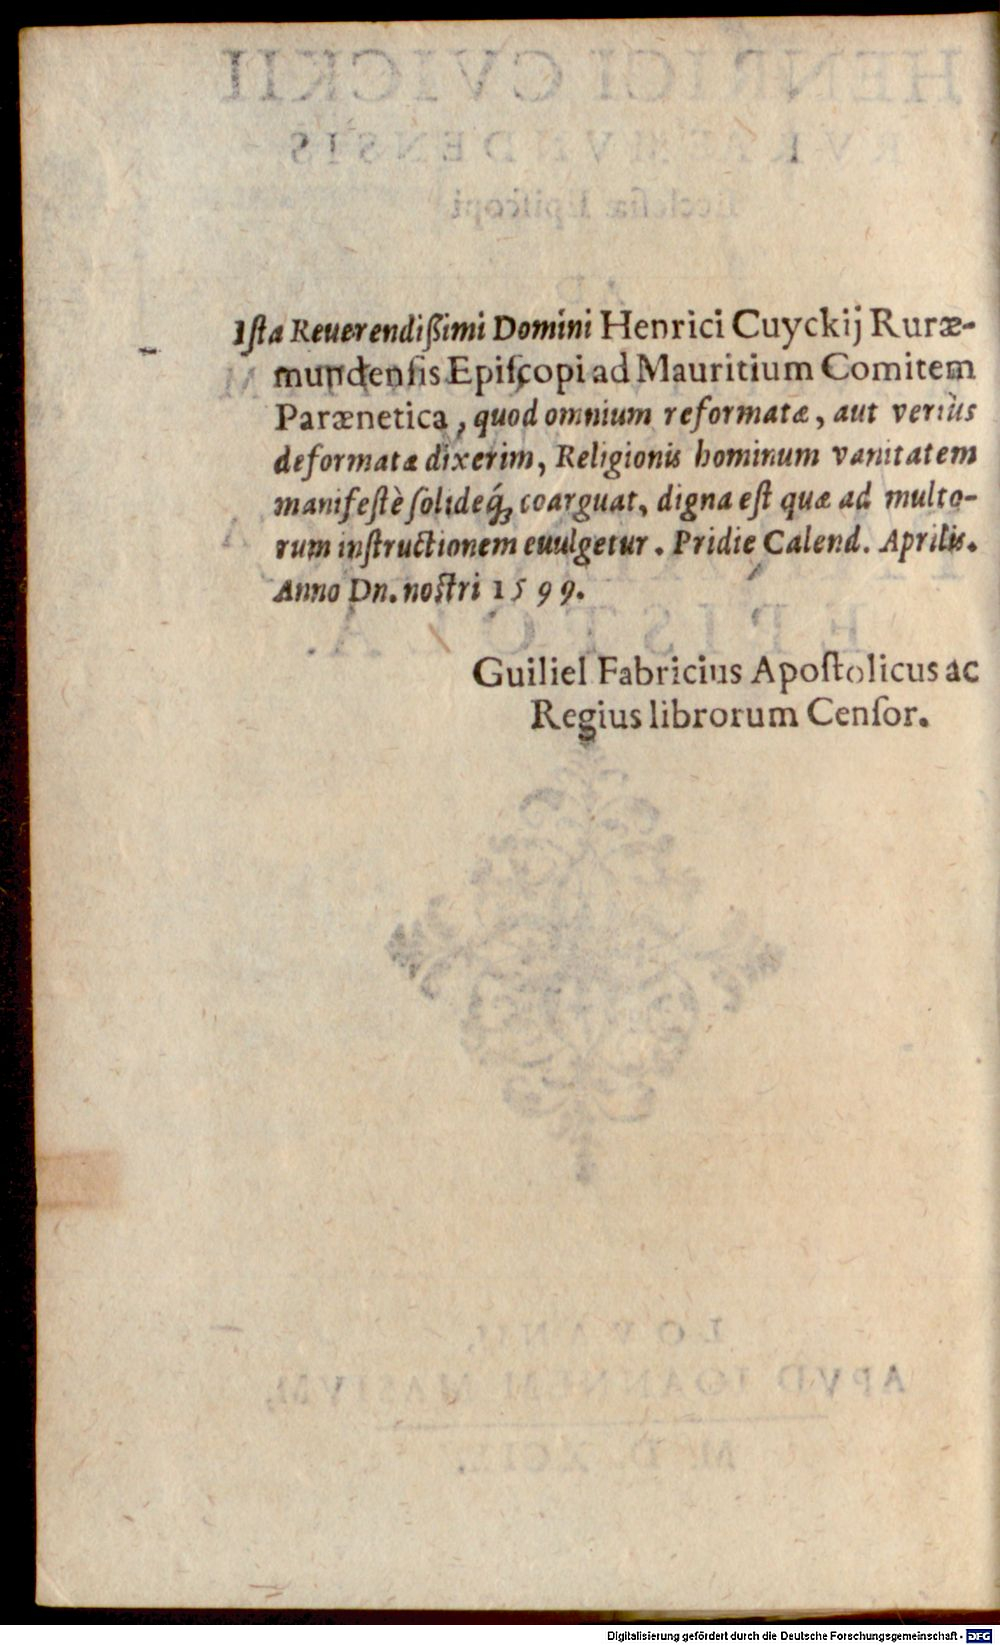 Iſta Reuerendiſſimi Domini Henrici Cuyckij Ruræ-
mundenſis Epiſcopi ad Mauritium Comitem
Parænetica, quod omnium reformatæ, aut veriùs
deformatæ dixerim, Religionis hominum vanitatem
manifeſtè ſolideq́; coarguat, digna eſt quæ ad multo-
rum inſtructionem euulgetur. Pridie Calend. Aprilis.
Anno Dn. noſtri 1599.
Guiliel Fabricius Apoſtolicus ac
Regius librorum Cenſor.
Digitalisierung gefördert durch die Deutsche Forschungsgemeinschaft - DFG